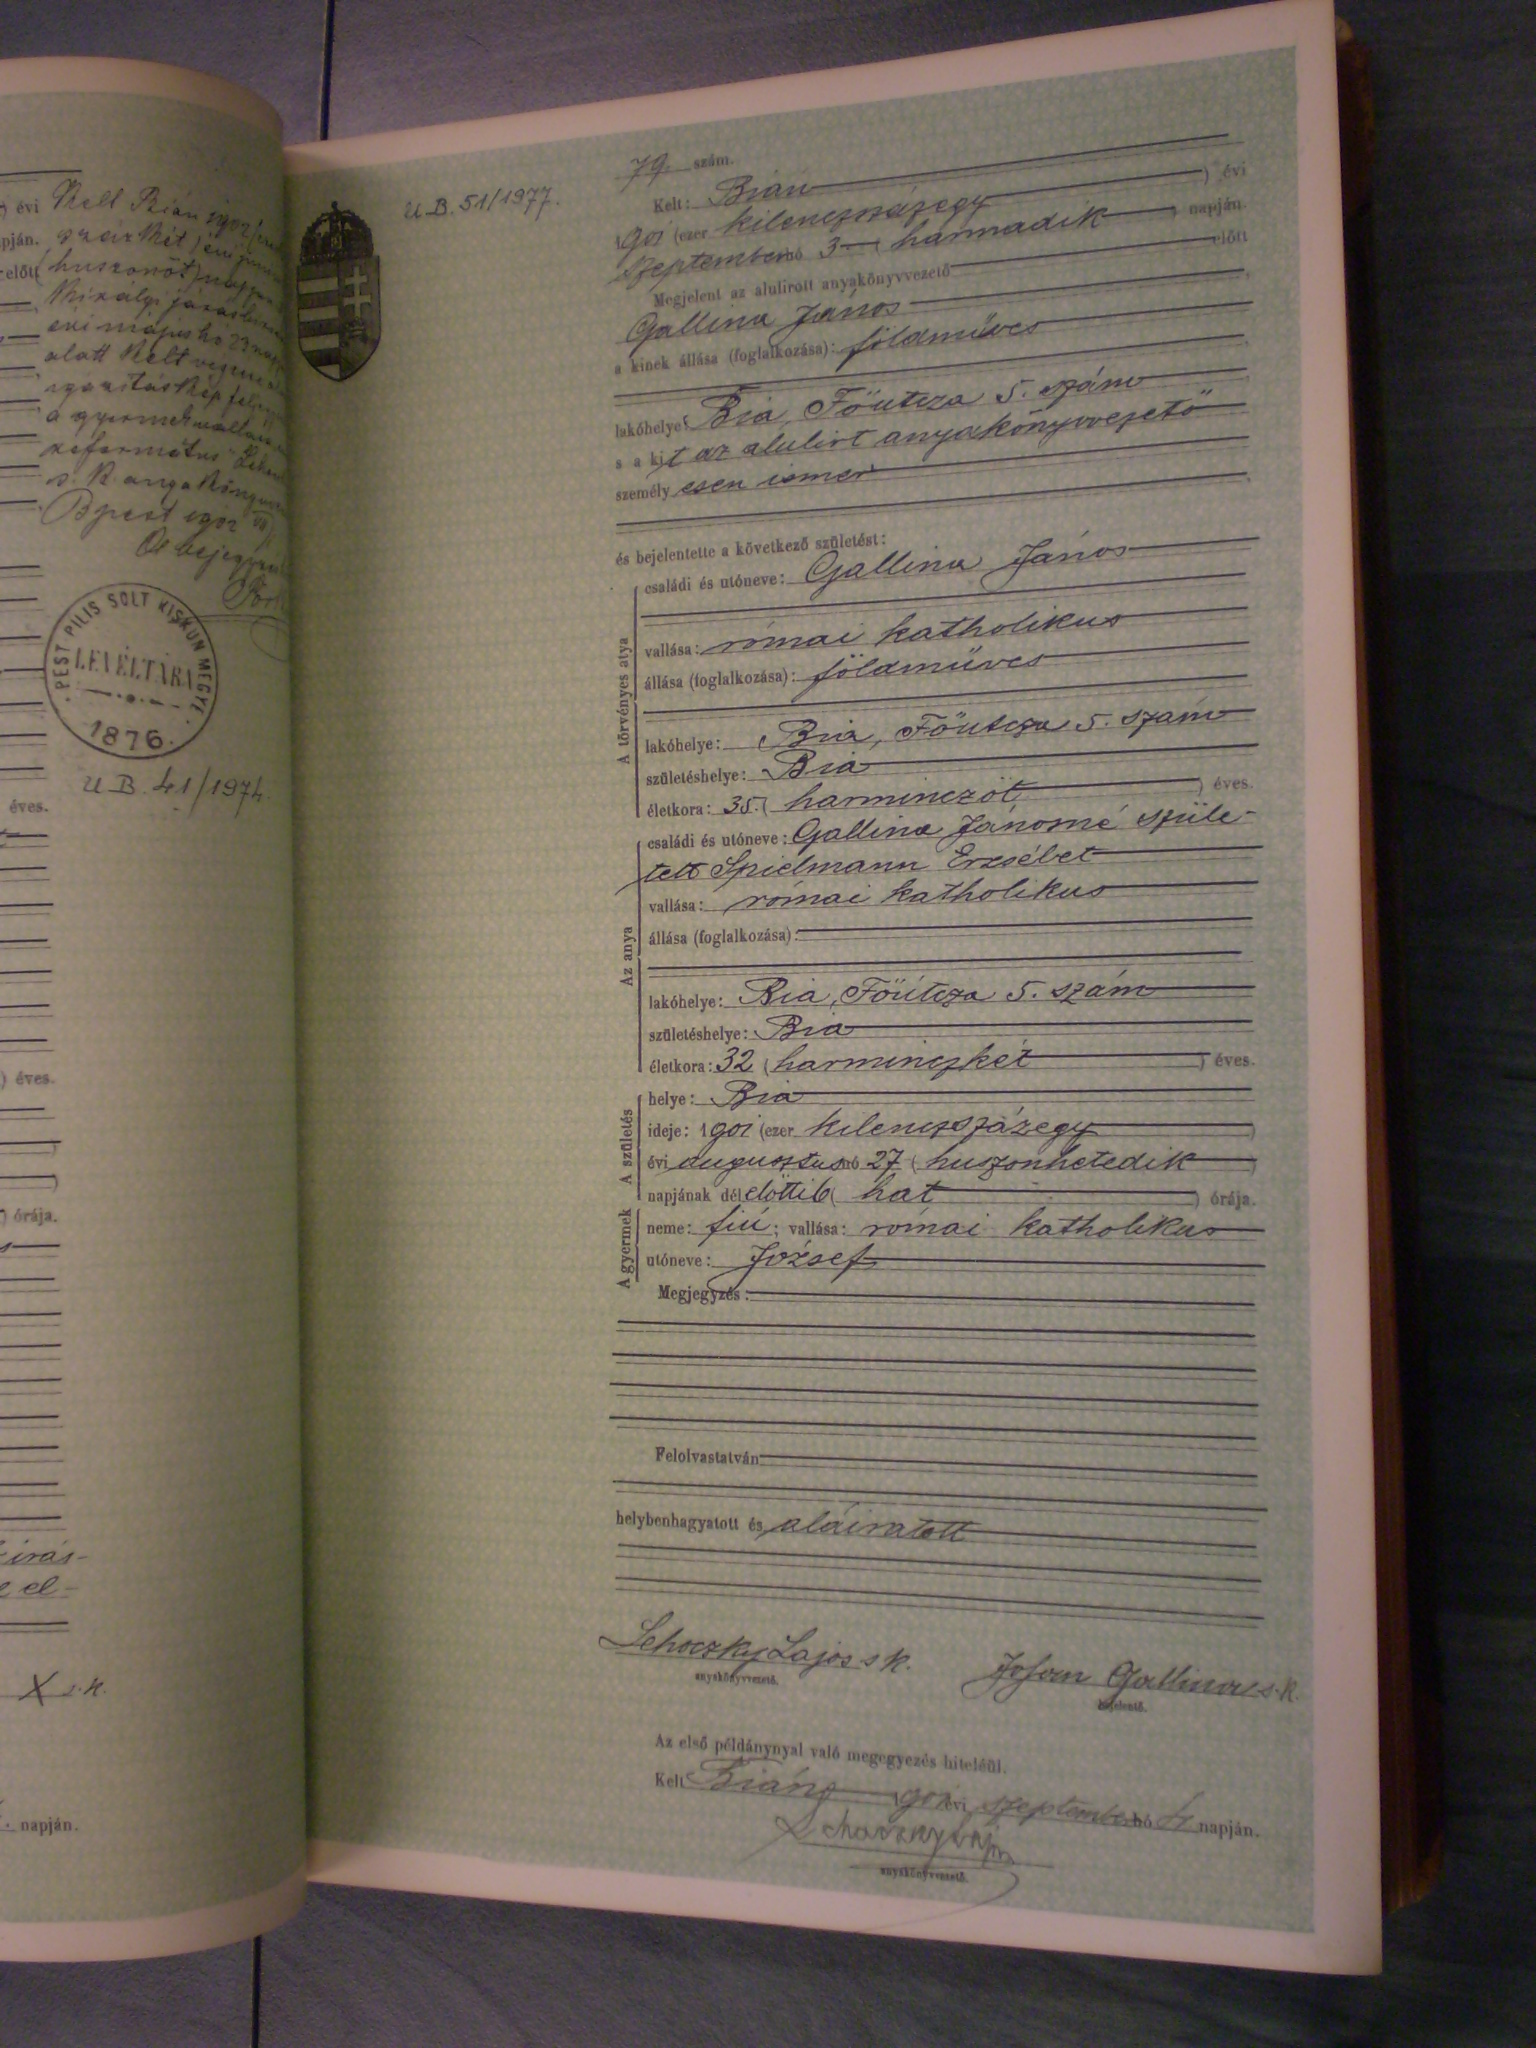 ) évi
Kelt Bián 1902 (ezer
pján.
előtt
(huszonöt) napján
évi május hó 23 nap
alatt kelt
a gyermek vallása
református
Bpest 1902
PEST PILIS SOLT KISKUN MEGYE
LEVÉLTÁRA
1876.
U B. 41/1974.
éves.
) éves.
) órája.
irás-
el-
X s.k.
napján.
U B. 51/1977.
79. szám.
Kelt: Bián ) évi
1901 (ezer kilenczszázegy
szeptember hó 3 ( harmadik ) napján.
Megjelent az alulirott anyakönyvvezető előtt
Gallina János
a kinek állása (foglalkozása): földmüves
lakóhelye: Bia, Föutcza 5. szám
s a kit az alulirt anyakönyvvezető
személyesen ismer
és bejelentette a következő születést:
A törvényes atya
családi és utóneve: Gallina János
vallása: római katholikus
állása (foglalkozása): földmüves
lakóhelye: Bia, Föutcza 5. szám
születéshelye: Bia
életkora: 35. ( harminczöt ) éves.
Az anya
családi és utóneve: Gallina Jánosné szüle-
tett Spielmann Erzsébet
vallása: római katholikus
állása (foglalkozása):
lakóhelye: Bia, Föutcza 5. szám
születéshelye: Bia
életkora: 32 ( harminczkét ) éves.
A születés
helye: Bia
ideje: 1901 (ezer kilenczszázegy )
évi augusztus hó 27 ( huszonhetedik )
napjának délelőtti 6 ( hat ) órája.
A gyermek
neme: fiú; vallása: római katholikus
utóneve: József
Megjegyzés:
Felolvastatván
helybenhagyatott és aláiratott
Lehoczky Lajos s k. Johan Gallina s. k.
anyakönyvvezető. bejelentő.
Az első példánynyal való megegyezés hiteléül.
Kelt Bián 1901 évi szeptember hó 4 napján.
Lehoczky Lajos
anyakönyvvezető.